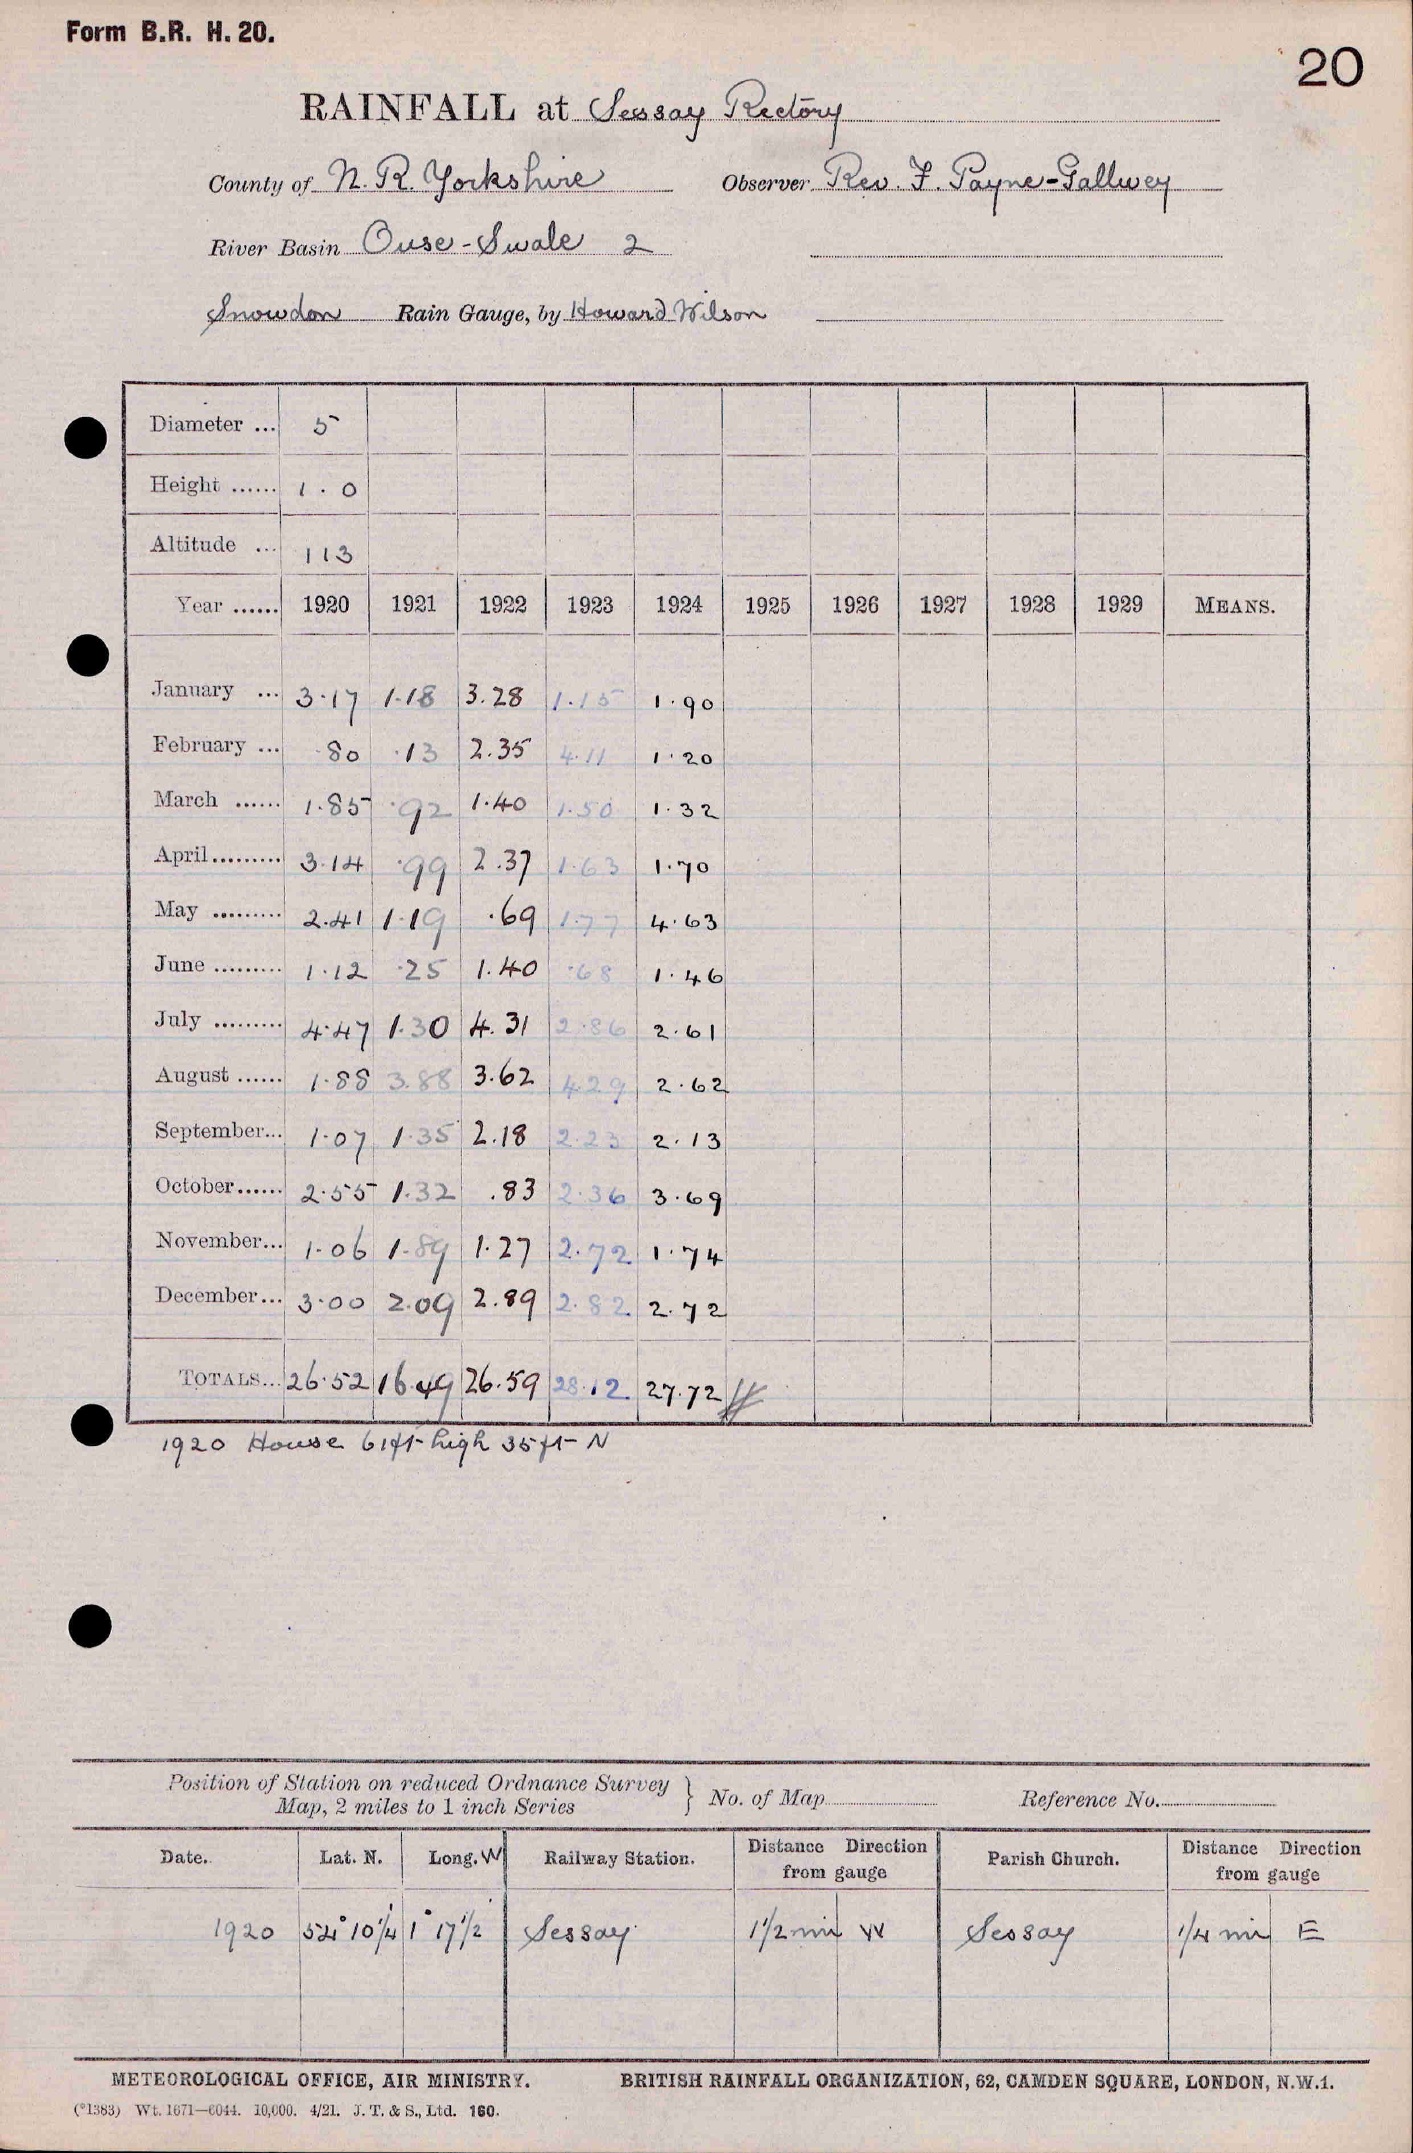 Form B.R. H. 20.
20
RAINFALL at Sessay Rectory
County of N. R. Yorkshire Observer Rev. F. Payne-Gallwey
River Basin Ouse-Swale 2
Snowdon Rain Gauge, by Howard Wilson
Diameter ... 5
Height ...... 1.0
Altitude ... 113
Year ...... 1920 1921 1922 1923 1924 1925 1926 1927 1928 1929 MEANS.
January ... 3.17 1.18 3.28 1.15 1.90
February ... .80 .13 2.35 4.11 1.20
March ...... 1.85 .92 1.40 1.50 1.32
April......... 3.14 .99 2.37 1.63 1.70
May ......... 2.41 1.19 .69 1.77 4.63
June ......... 1.12 .25 1.40 .68 1.46
July ......... 4.47 1.30 4.31 2.86 2.61
August ...... 1.88 3.88 3.62 4.29 2.62
September... 1.07 1.35 2.18 2.23 2.13
October...... 2.55 1.32 .83 2.36 3.69
November... 1.06 1.89 1.27 2.72 1.74
December... 3.00 2.09 2.89 2.82 2.72
TOTALS... 26.52 16.49 26.59 28.12 27.72
1920 House 61ft high 35ft N
Position of Station on reduced Ordnance Survey
Map, 2 miles to 1 inch Series } No. of Map Reference No.
Date. Lat. N. Long. W Railway Station. Distance Direction from gauge Parish Church. Distance Direction from gauge
1920 54° 10¼' 1° 17½' Sessay 1½ mi W Sessay ¼ mi E
METEOROLOGICAL OFFICE, AIR MINISTRY. BRITISH RAINFALL ORGANIZATION, 62, CAMDEN SQUARE, LONDON, N.W.1.
(*1383) Wt. 1671—6044. 10,000. 4/21. J. T. & S., Ltd. 160.